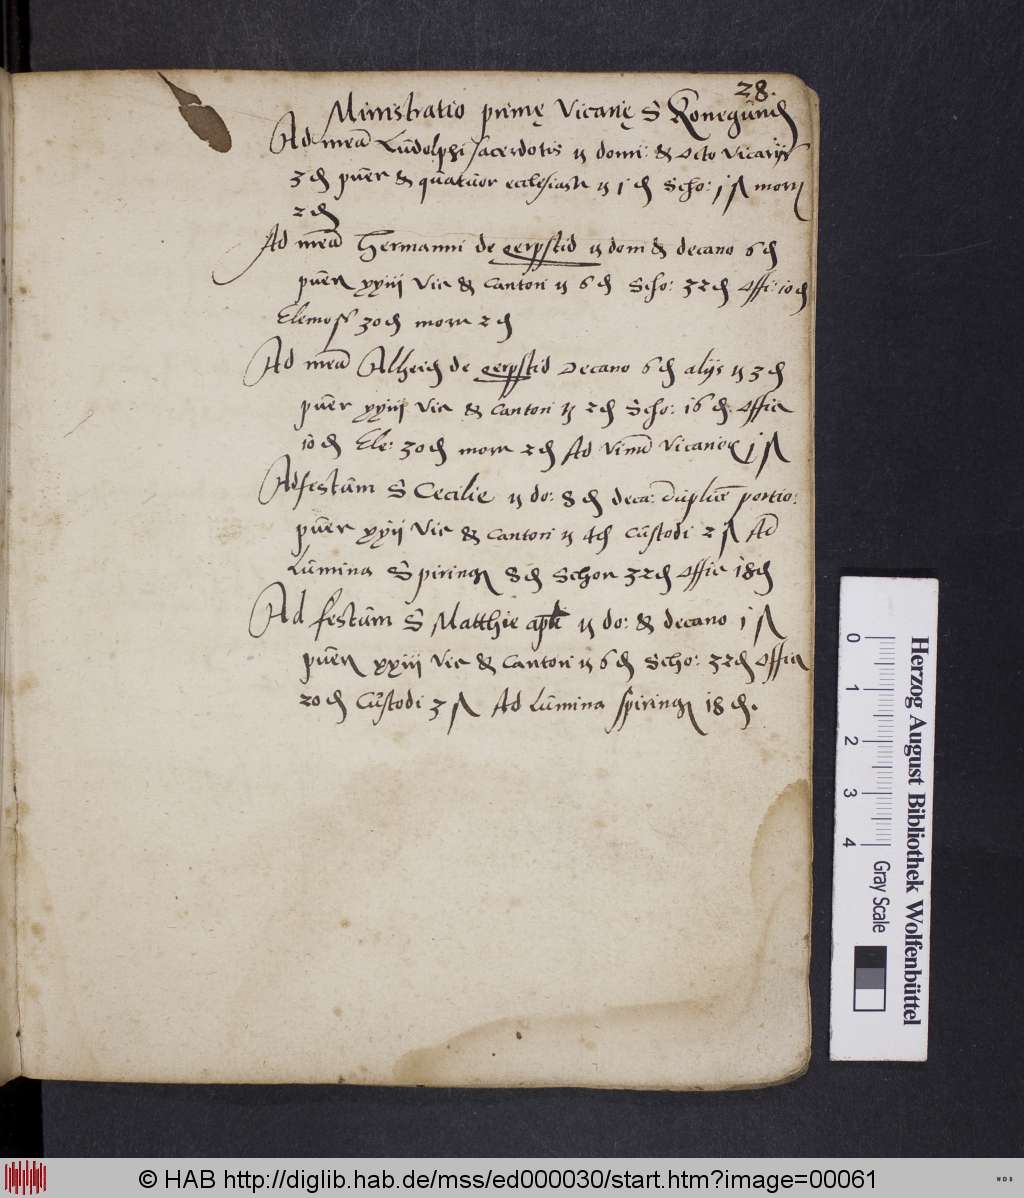 28.
Ministratio primę Vicarię S Konegund
Ad mem Ludolphi sacerdotis domi: & octo vicarijs
3 puer & quatuor ecclesiast Scho: mor
2
Ad mem Hermanni de gerpstid domi & decano 6
puer xxiij vic & cantori 6 Scho: 32 offi: 10
Elemos 30 mor 2
Ad mem Alheid de gerpstid Decano 6 alijs 3
puer xxiij Vic & cantori 2 Scho: 16 offic
10 Ele: 30 mor 2 Ad vinu Vicarior
Ad festum S Cecilie do: 8 deca: duplice portio:
puer vic & cantori 4 Custodi 2 Ad
Lumina Spiring 8 Schor 32 offic 18
Ad festum S Matthie apli do: & decano
puer xxiij vic & cantori 6 Scho: 32 offic
20 Custodi 3 Ad Lumina spiring 18
Herzog August Bibliothek Wolfenbüttel
0 1 2 3 4 Gray Scale
© HAB http://diglib.hab.de/mss/ed000030/start.htm?image=00061